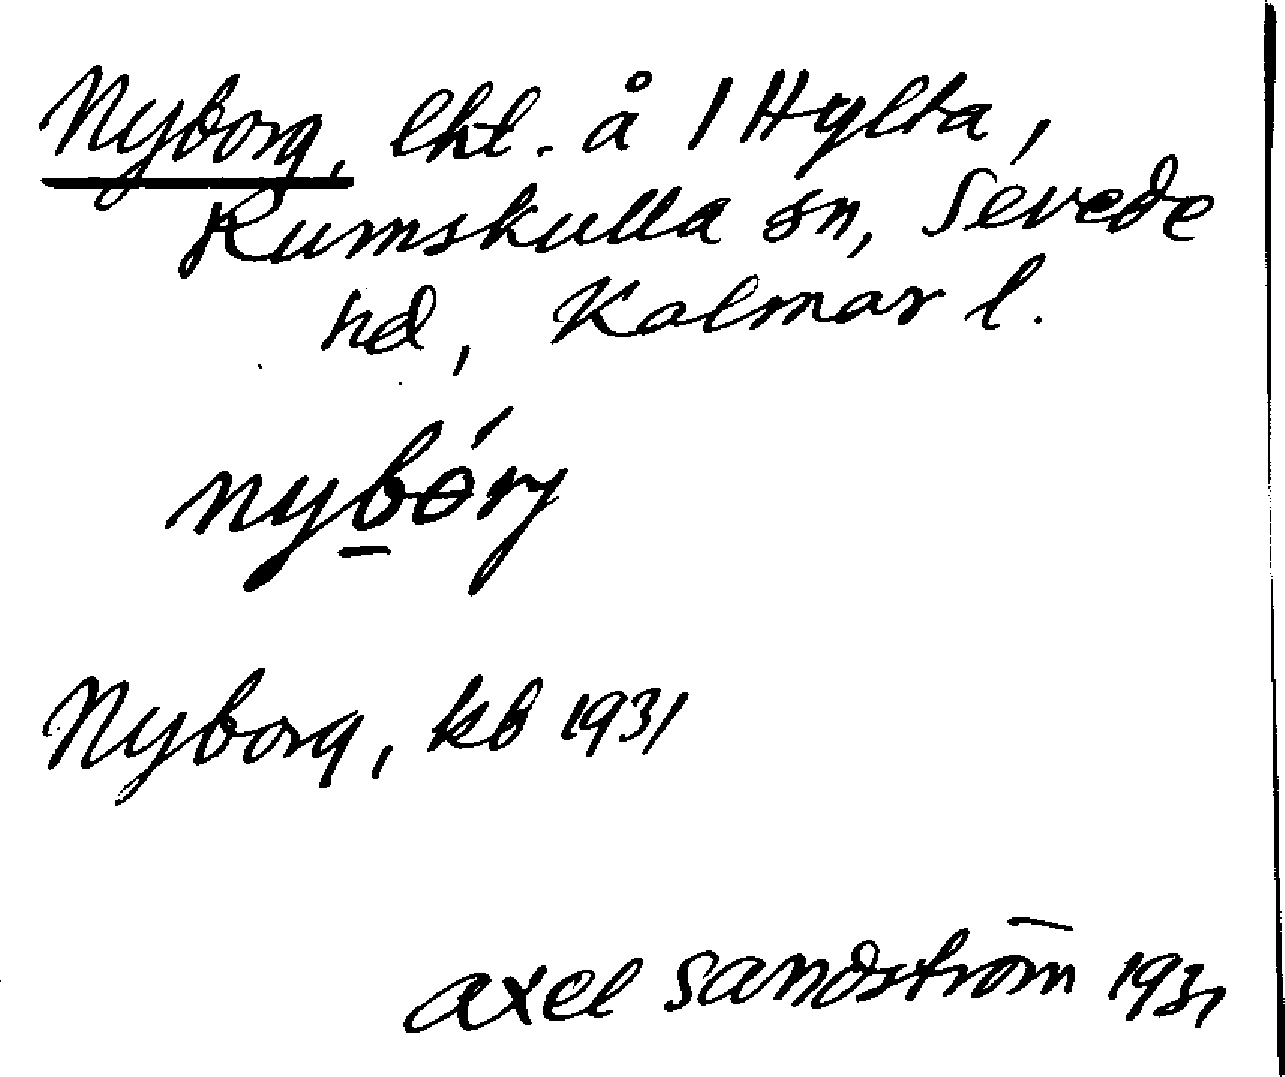 Nyborg, lht. å 1 Hylta,
Rumskulla sn, Sevede
hd, Kalmar l.
nybɵ́rj
Nyborg, kb 1931
Axel Sandström 1931